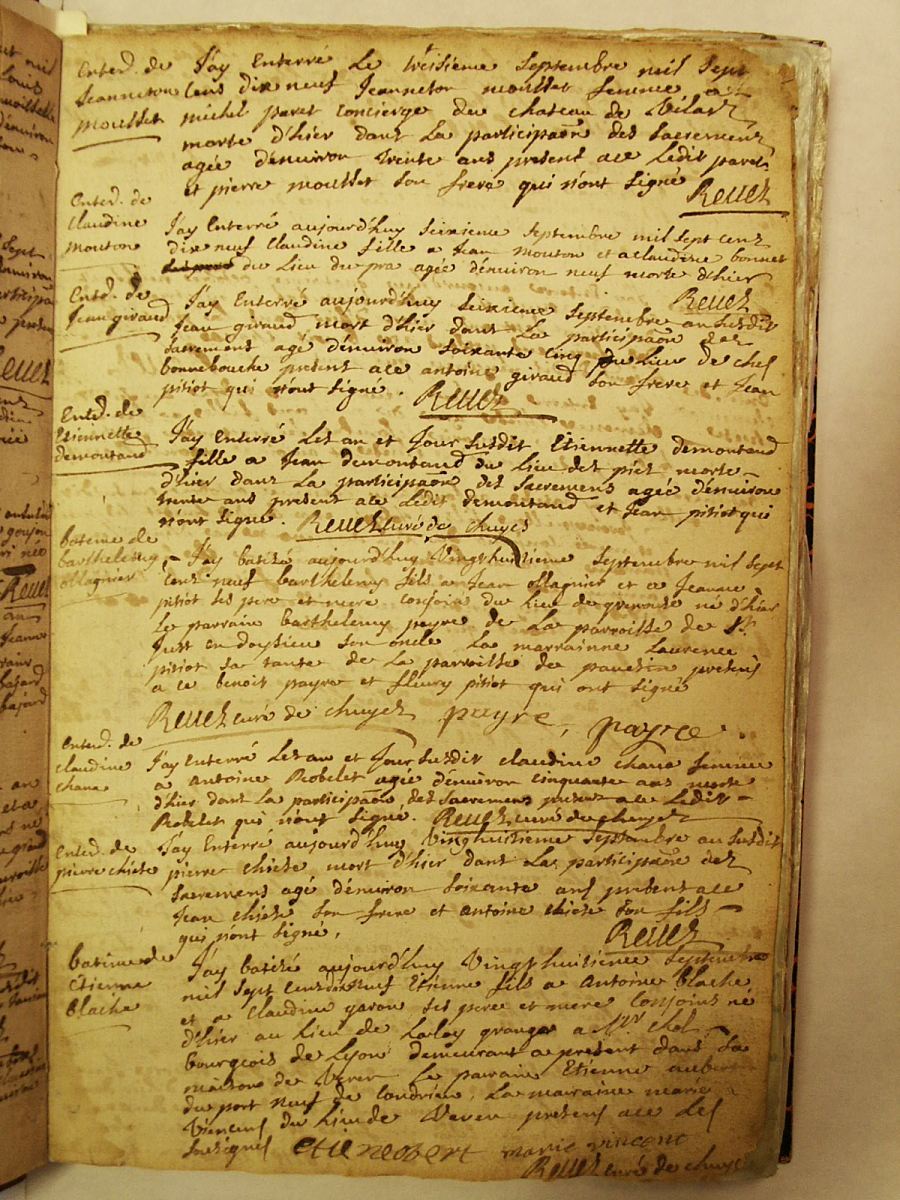 Enter.t de
Jeanneton
mousset
J'ay Enterré Le treisieme Septembre mil Sept
Cens dix neuf Jeanneton mousset femme a
michel paret Concierge du chateau de Vilars
morte d'hier dans La participaõn des Sacremens
agée d'environ trente ans present a ce Ledit paret
et pierre mousset son frere qui n'ont signé
Reuez
Enter.t de
Claudine
mouton
J'ay Enterré aujourd'huy seixieme Septembre mil Sept cens
dix neuf Claudine fille a Jean mouton et a claudine bonnet
du Lieu du pra agée d'environ neuf morte d'hier
Reuez
Ent.t de
Jean giraud
J'ay Enterré aujourd'huy seixieme Septembre an susdit
Jean giraud mort d'hier dans La participaõn des
Sacremens agé d'environ soixante cinq du Lieu de chez
bonnebouche present a ce antoine giraud son frere et Jean
pitiot qui n'ont signé.
Reuez
Ent.t de
Etiennette
demontaud
J'ay Enterré Les an et Jour susdit Etiennette demontaud
fille a Jean demontaud du Lieu des piez morte
d'hier dans La participaõn des Sacremens agée d'environ
trente ans present a ce Ledit demontaud et Jean pitiot qui
n'ont signé.
Reuez curé de chuyes
bateme de
barthelemy
ollagnier
J'ay batizé aujourd'huy Vingthuitieme Septembre mil Sept
Cens neuf barthelemy fils a Jean ollagnier et a Jeanne
pitiot ses pere et mere conjoins du Lieu de né d'hier
Le parrain barthelemy payre de La parroisse de St
Just en doysieu son oncle La marrainne Laurence
pitiot sa tante de La parroisse de presens
a ce benoit payre et fleury pitiot qui ont signé
Reuez curé de chuyes payre, payre.
Enter.t de
Claudine
chana
J'ay Enterré Les an et Jour susdit claudine chana femme
a antoine Robelet agée d'environ cinquante ans morte
d'hier dans La participaõn des Sacremens present a ce Ledit
Robelet qui n'ont signé. Reuez curé de chuyes
Enter.t de
pierre chieze
J'ay Enterré aujourd'huy Vinghuitieme Septembre an susdit
pierre chieze mort d'hier dans La participaõn des
Sacremens agé d'environ soixante ans present a ce
Jean chieze son frere et antoine chieze son fils
qui n'ont signé.
Reuez
bateme de
Etienne
blache
J'ay batizé aujourd'huy Vingthuitieme Septembre
mil Sept Cens dix neuf Etienne fils a Antoine blache
et a Claudine garon ses pere et mere Conjoins né
d'hier au Lieu de Lalay granger a Mr chol
bourgeois de Lyon demeurant a present dans La
maison de Veren Le parrain Etienne aubert
du port neuf de Condrieu, La marraine marie
Vincent du Lieu de Veren presens a ce Les
sousignes etieneobert marie vincent
Reuez curé de chuyes